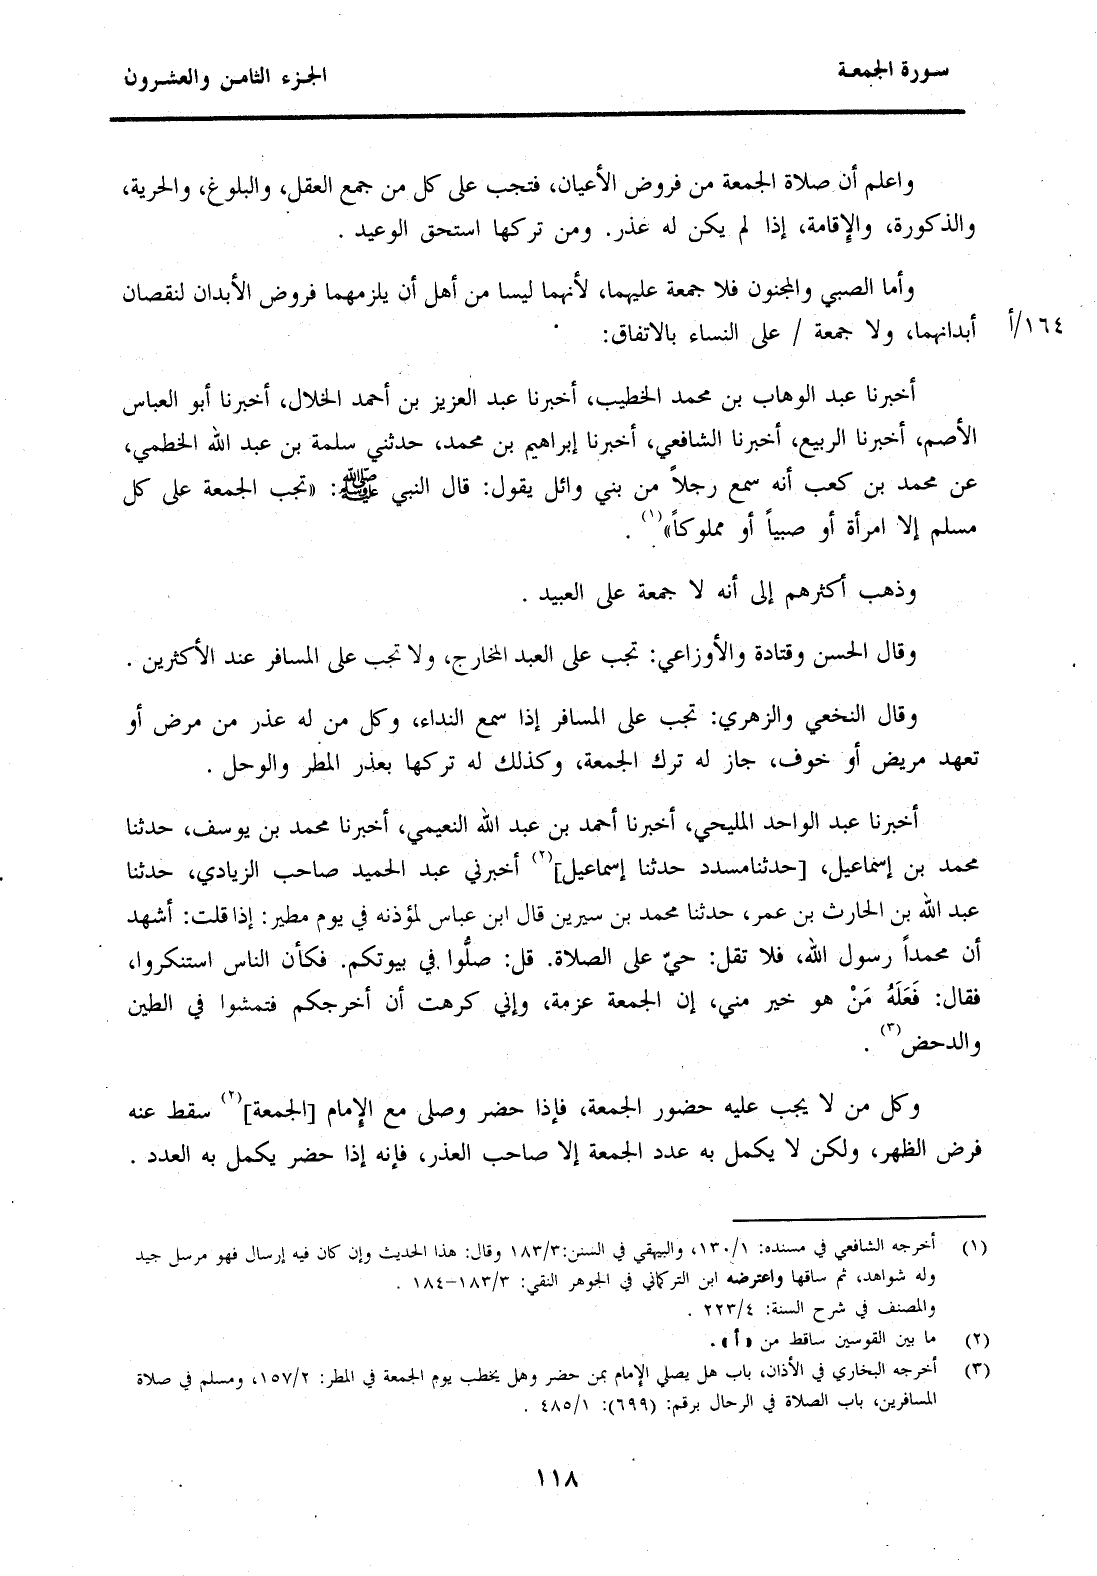 سورة الجمعة
الجزء الثامن والعشرون
واعلم أن صلاة الجمعة من فروض الأعيان، فتجب على كل من جمع العقل، والبلوغ، والحرية،
والذكورة، والإقامة، إذا لم يكن له عذر. ومن تركها استحق الوعيد .
وأما الصبي والمجنون فلا جمعة عليهما، لأنهما ليسا من أهل أن يلزمهما فروض الأبدان لنقصان
أبدانهما، ولا جمعة / على النساء بالاتفاق:
١٦٤/أ
أخبرنا عبد الوهاب بن محمد الخطيب، أخبرنا عبد العزيز بن أحمد الخلال، أخبرنا أبو العباس
الأصم، أخبرنا الربيع، أخبرنا الشافعي، أخبرنا إبراهيم بن محمد، حدثني سلمة بن عبد الله الخطمي،
عن محمد بن كعب أنه سمع رجلاً من بني وائل يقول: قال النبي ﷺ: «تجب الجمعة على كل
مسلم إلا امرأة أو صبياً أو مملوكاً»(١) .
وذهب أكثرهم إلى أنه لا جمعة على العبيد .
وقال الحسن وقتادة والأوزاعي: تجب على العبد المخارج، ولا تجب على المسافر عند الأكثرين .
وقال النخعي والزهري: تجب على المسافر إذا سمع النداء، وكل من له عذر من مرض أو
تعهد مريض أو خوف، جاز له ترك الجمعة، وكذلك له تركها بعذر المطر والوحل .
أخبرنا عبد الواحد المليحي، أخبرنا أحمد بن عبد الله النعيمي، أخبرنا محمد بن يوسف، حدثنا
محمد بن إسماعيل، [حدثنا مسدد حدثنا إسماعيل](٢) أخبرني عبد الحميد صاحب الزيادي، حدثنا
عبد الله بن الحارث بن عمر، حدثنا محمد بن سيرين قال ابن عباس لمؤذنه في يوم مطير: إذا قلت: أشهد
أن محمداً رسول الله، فلا تقل: حيّ على الصلاة. قل: صلُّوا في بيوتكم. فكأن الناس استنكروا،
فقال: فَعَلَهُ مَنْ هو خير مني، إن الجمعة عزمة، وإني كرهت أن أخرجكم فتمشوا في الطين
والدحض(٣) .
وكل من لا يجب عليه حضور الجمعة، فإذا حضر وصلى مع الإمام [الجمعة](٢) سقط عنه
فرض الظهر، ولكن لا يكمل به عدد الجمعة إلا صاحب العذر، فإنه إذا حضر يكمل به العدد .
(١) أخرجه الشافعي في مسنده: ١٣٠/١، والبيهقي في السنن:١٨٣/٣ وقال: هذا الحديث وإن كان فيه إرسال فهو مرسل جيد
وله شواهد، ثم ساقها واعترضه ابن التركماني في الجوهر النقي: ١٨٣/٣-١٨٤ .
والمصنف في شرح السنة: ٢٢٣/٤ .
(٢) ما بين القوسين ساقط من «أ».
(٣) أخرجه البخاري في الأذان، باب هل يصلي الإمام بمن حضر وهل يخطب يوم الجمعة في المطر: ١٥٧/٢، ومسلم في صلاة
المسافرين، باب الصلاة في الرحال برقم: (٦٩٩): ٤٨٥/١ .
١١٨